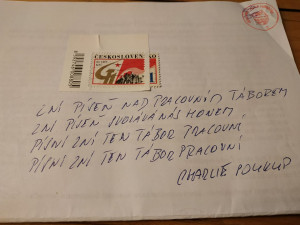 ČESKOSLOVEN
ZNÍ PÍSEŇ NAD PRACOVNÍM TÁBOREM
ZNÍ PÍSEŇ SVOLÁVÁ NÁS HONEM
PÍSNÍ ZNÍ TEN TÁBOR PRACOVNÍ
PÍSNÍ ZNÍ TEN TÁBOR PRACOVNÍ
CHARLIE